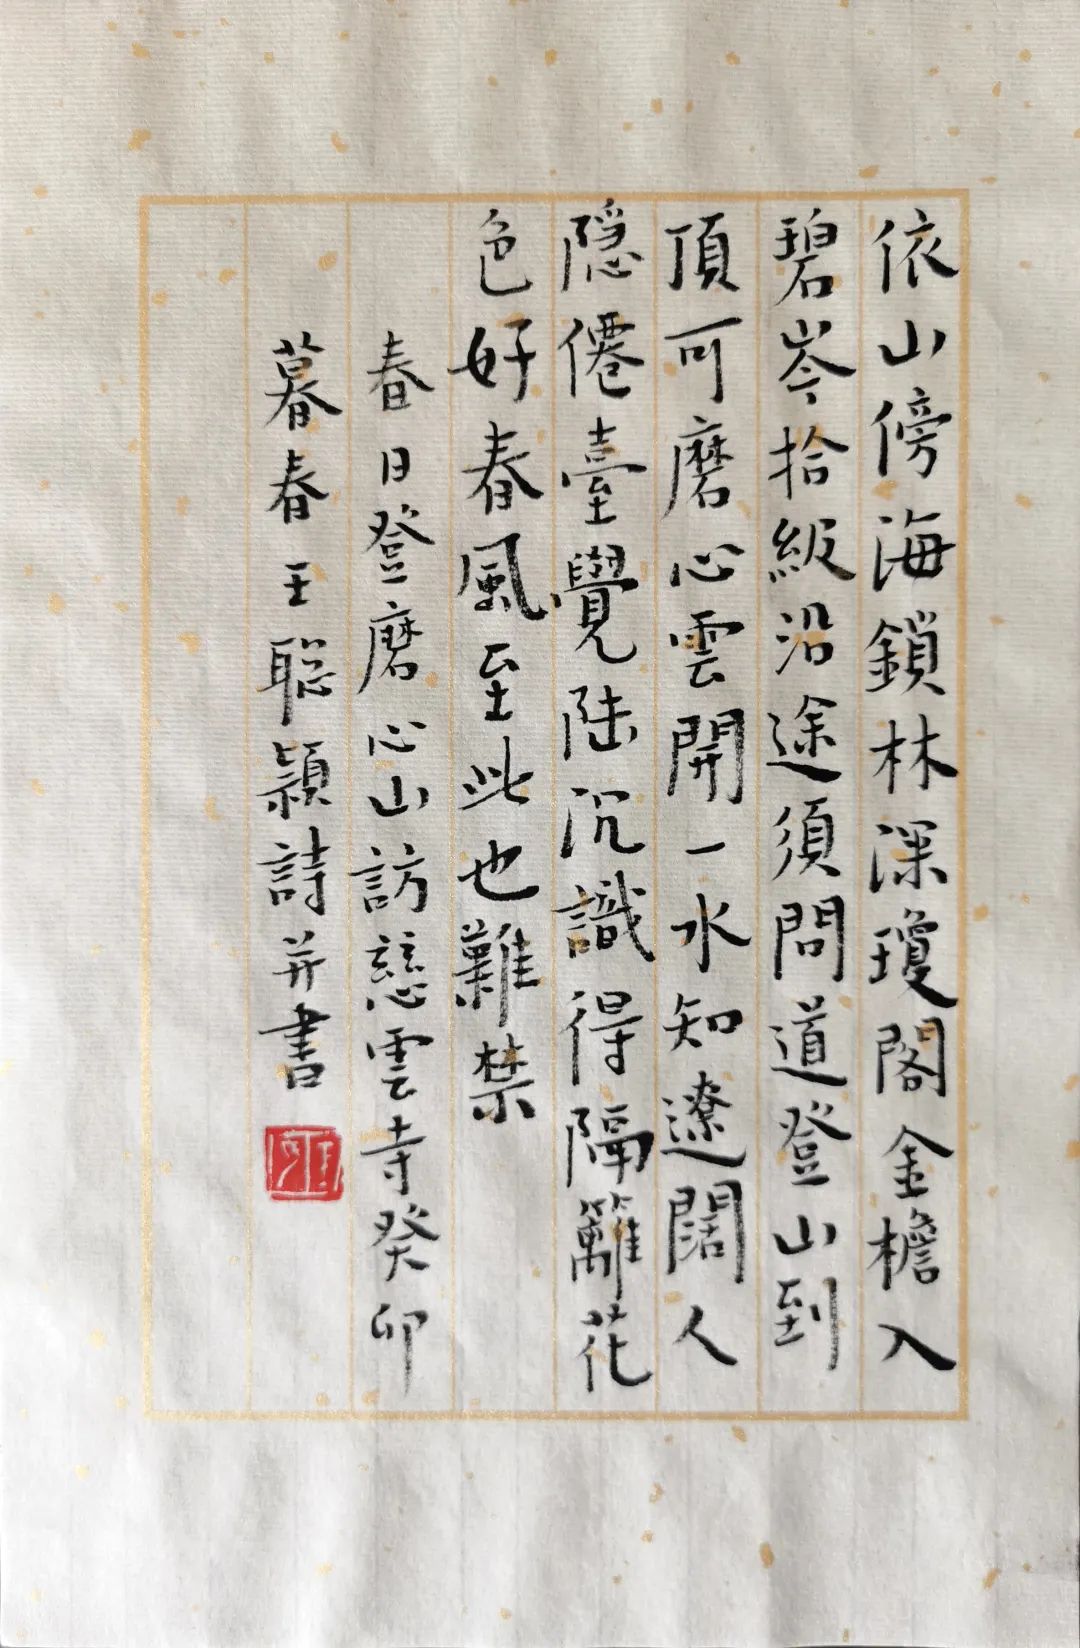 依山傍海鎖林深瓊閣金檐入
碧岑拾級沿途須問道登山到
頂可磨心雲開一水知遼闊人
隱僊臺覺陸沉識得隔籬花
色好春風至此也難禁
春日登磨心山訪慈雲寺癸卯
暮春王聰穎詩并書